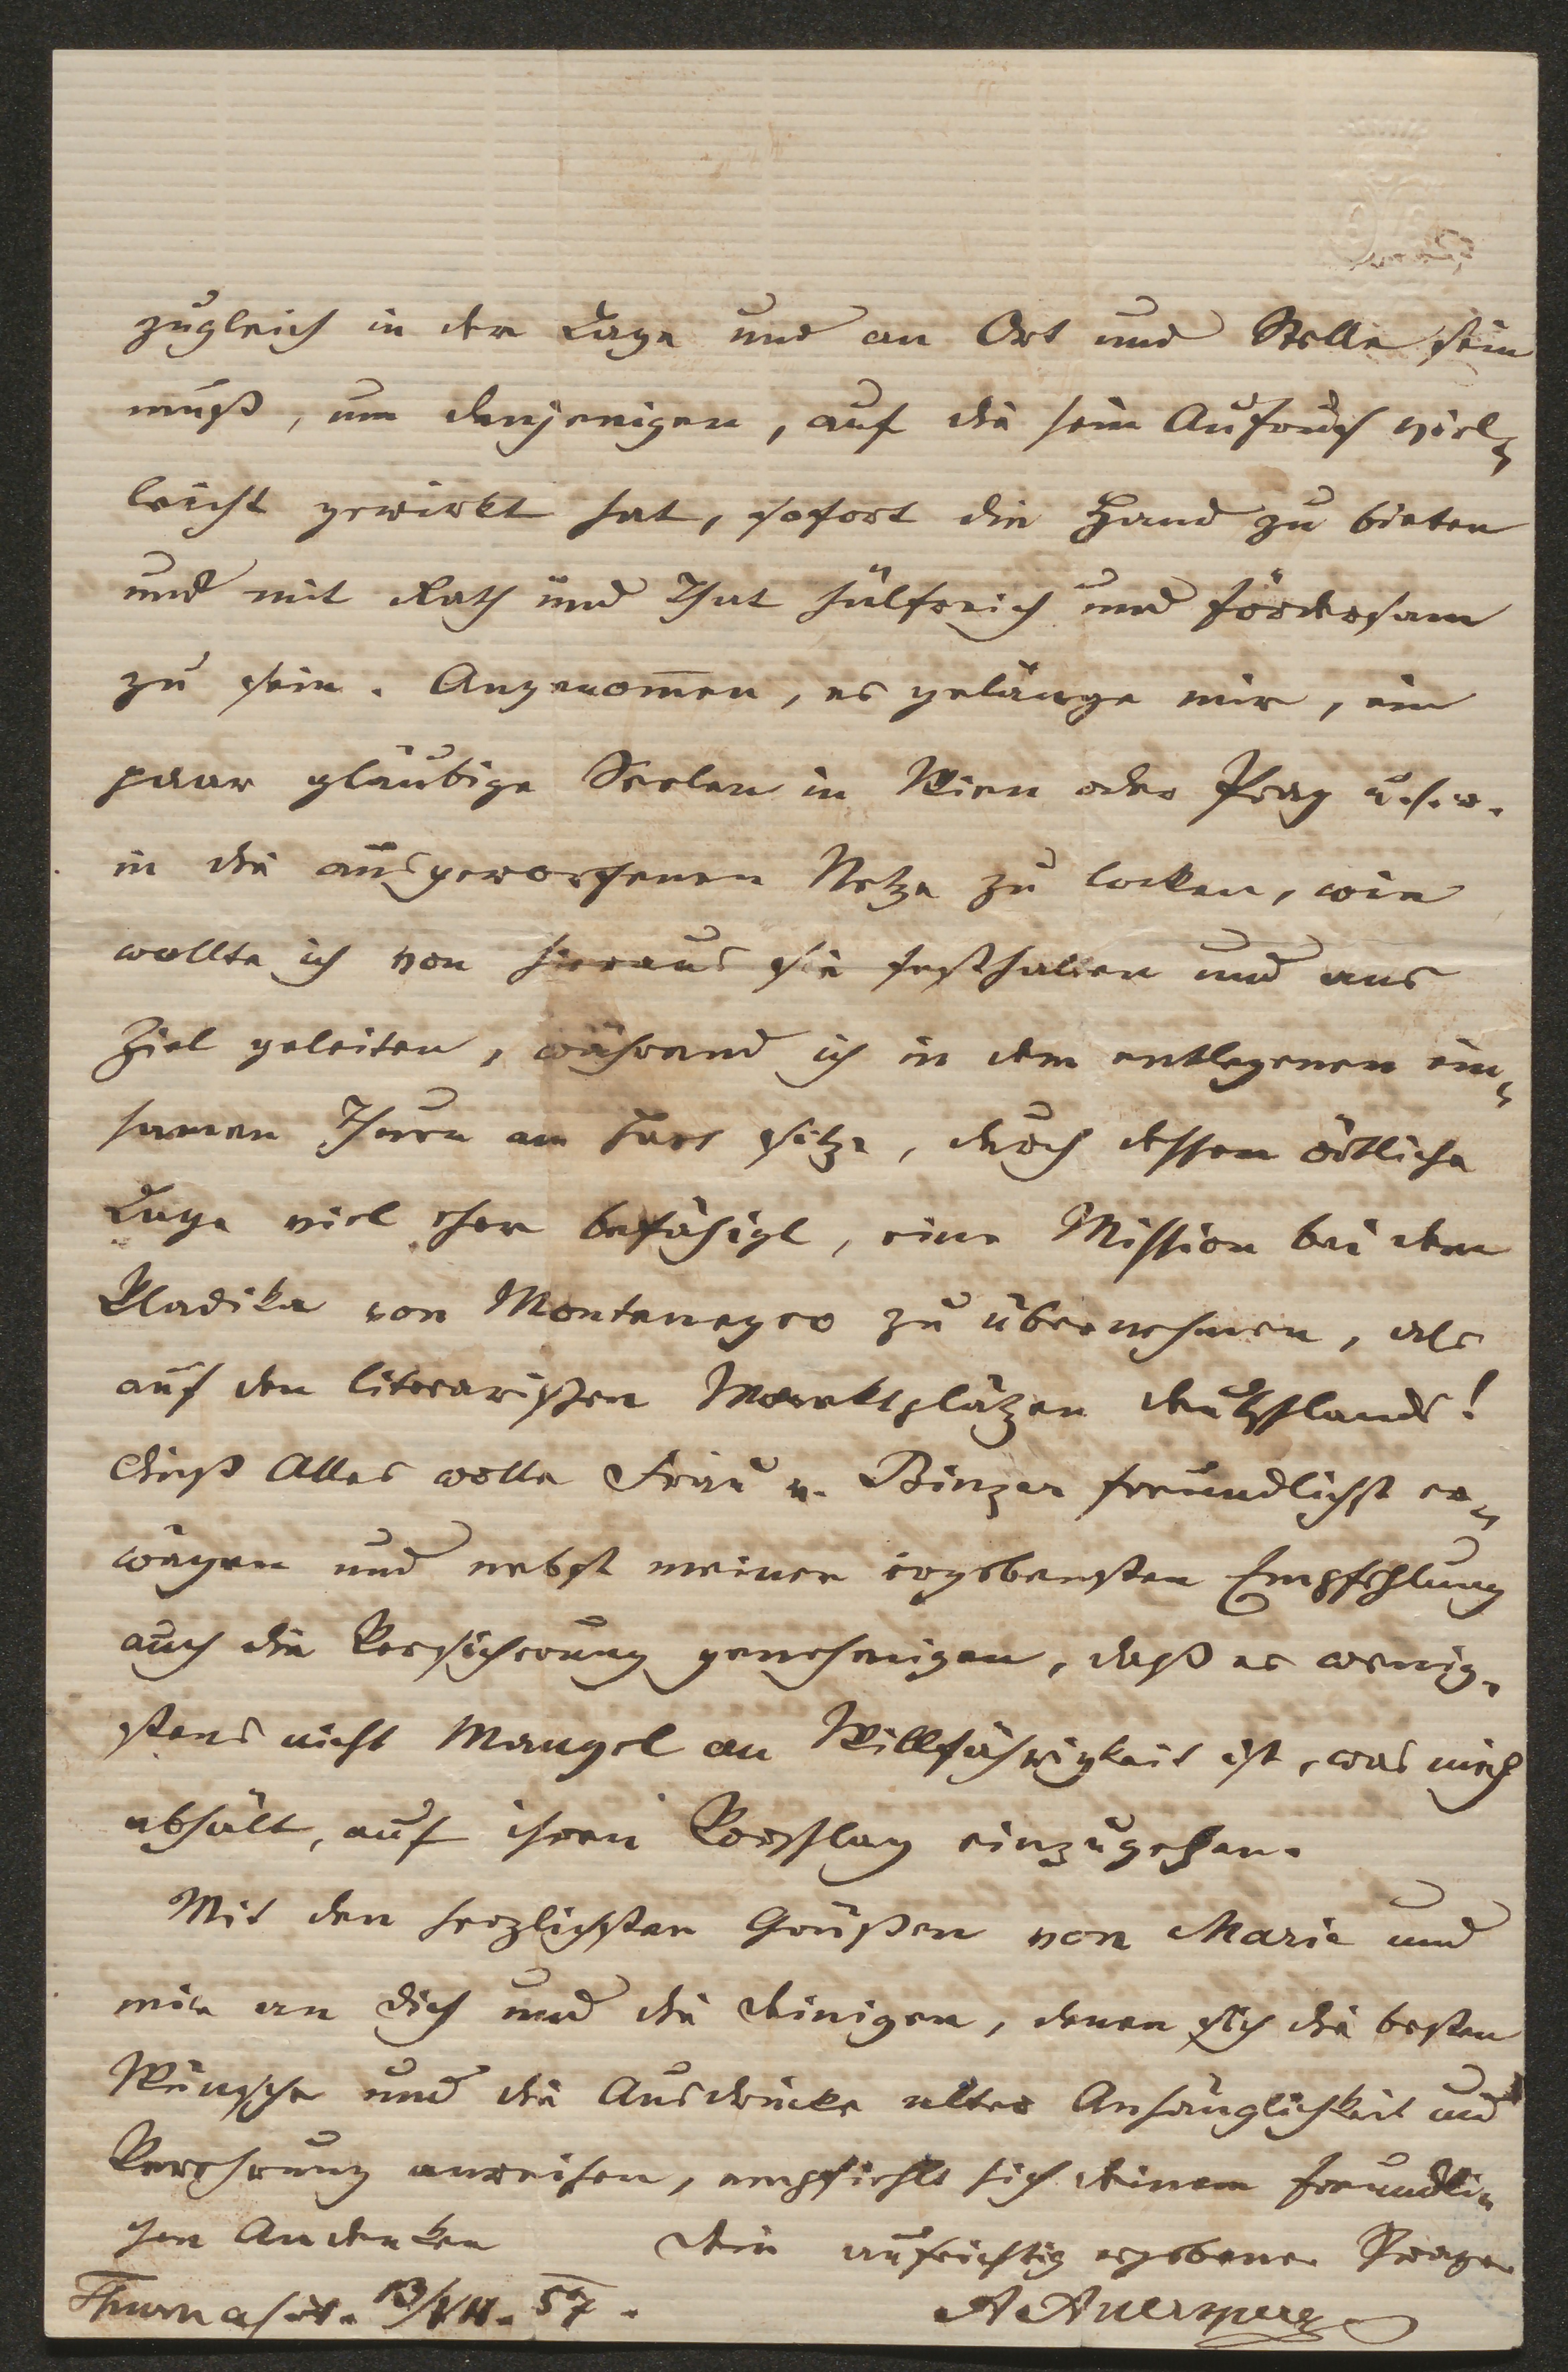 zugleich in der Lage und an Ort und Stelle sein
muß, um denjenigen, auf die sein Aufruf viel-
leicht gewirkt hat, sofort die Hand zu bieten
und mit Rath und That hülfreich und fördersam
zu sein. Angenom̄en, es gelänge mir, ein
paar gläubige Seelen in Wien oder Prag u.s.w.
in die ausgeworfenen Netze zu locken, wie
wollte ich von hieraus sie festhalten und ans
Ziel geleiten, während ich in dem entlegenen ein-
samen Thurn am Hart sitze, durch dessen örtliche
Lage viel eher befähigt, eine Mission bei dem
Vladika von Montenegro zu übernehmen, als
auf den literarischen Marktplätzen Deutschlands!
Dieß Alles wolle Frau v. Binzer freundlichst er-
wägen und nebst meiner ergebensten Empfehlung
auch die Versicherung genehmigen, daß es wenig-
stens nicht Mangel an Willfährigkeit ist, was mich
abhält, auf ihren Vorschlag einzugehen.
Mit den herzlichsten Grüßen von Marie und
mir an Dich und die Deinigen, denen sich die besten
Wünsche und die Ausdrücke alter Anhänglichkeit und
Verehrung anreihen, empfiehlt sich Deinem freundli-
chen Andenken Dein aufrichtig ergebener
Thurnahart. 13/VII. 57.
A Auersperg